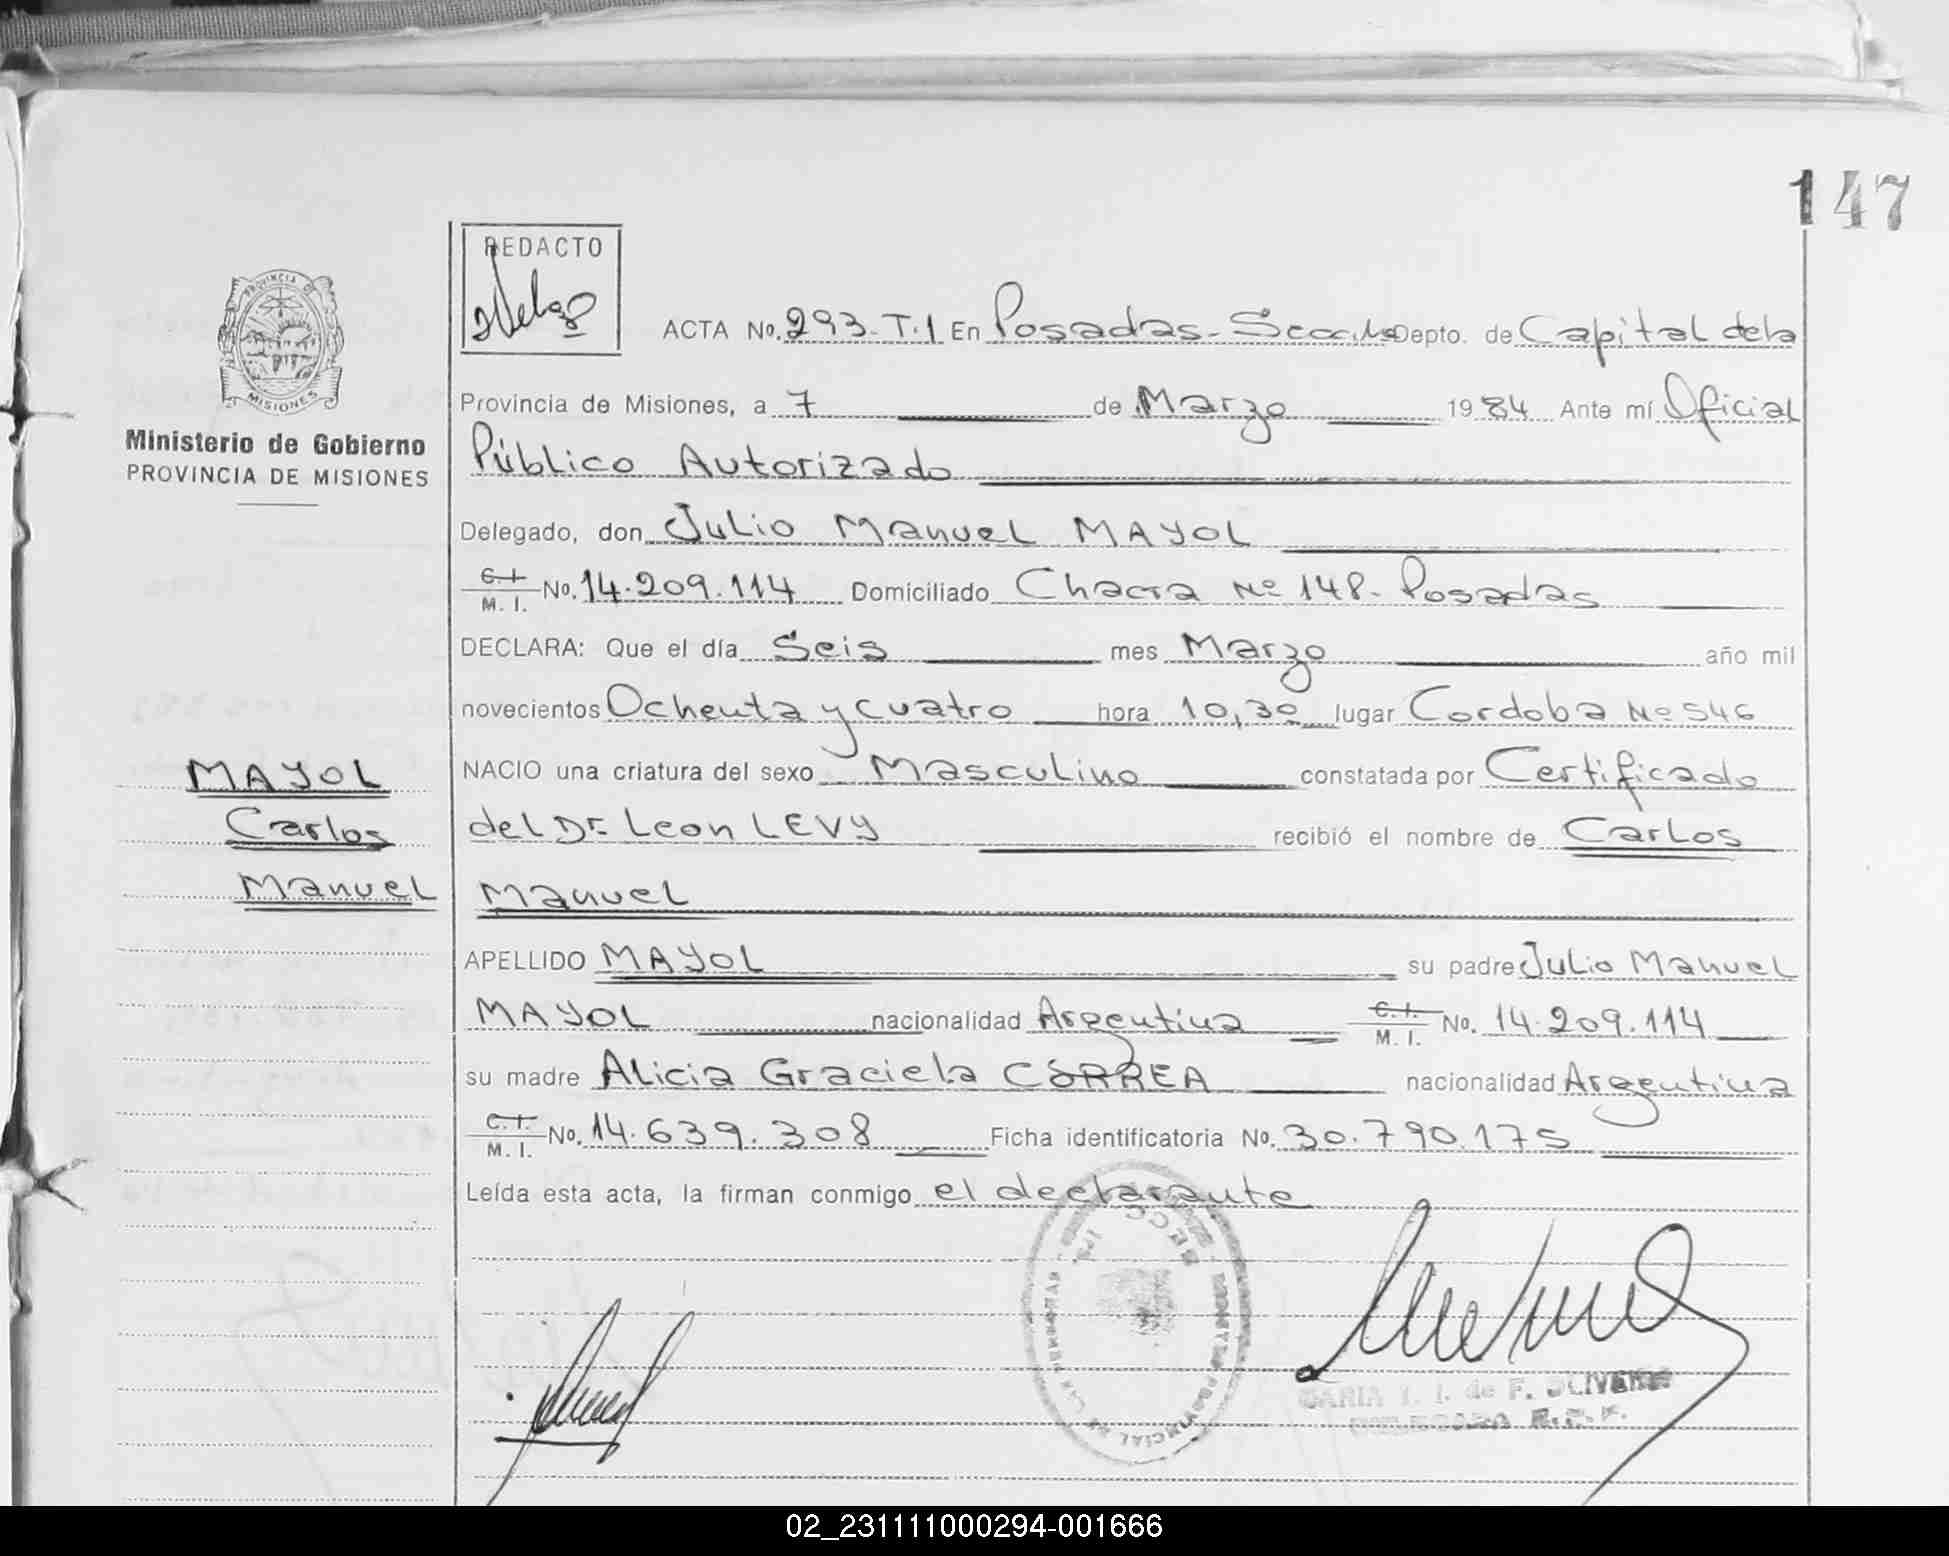 147
REDACTO
PROVINCIA DE
MISIONES
Ministerio de Gobierno
PROVINCIA DE MISIONES
ACTA No. 293-T.1 En Posadas-Secc. Depto. de Capital de la
Provincia de Misiones, a 7 de Marzo 1984 Ante mí Oficial
Público Autorizado
Delegado, don Julio Manuel MAYOL
C.I.
M. I. No. 14.209.114 Domiciliado Chacra Nº 148. Posadas
DECLARA: Que el día Seis mes Marzo año mil
novecientos Ochenta y cuatro hora 10,30 lugar Cordoba Nº 546
NACIO una criatura del sexo Masculino constatada por Certificado
del Dr. Leon LEVY recibió el nombre de Carlos
Manuel
MAYOL
Carlos
Manuel
APELLIDO MAYOL su padre Julio Manuel
MAYOL nacionalidad Argentina C.I.
M. I. No. 14.209.114
su madre Alicia Graciela CORREA nacionalidad Argentina
C.I.
M. I. No. 14.639.308 Ficha identificatoria No. 30.790.175
Leída esta acta, la firman conmigo el declarante
SECC. 1ra.
PROVINCIAL DE LAS PERSONAS
I. de F. OLIVEIRA
DELEGADA R.P.P.
02_231111000294-001666